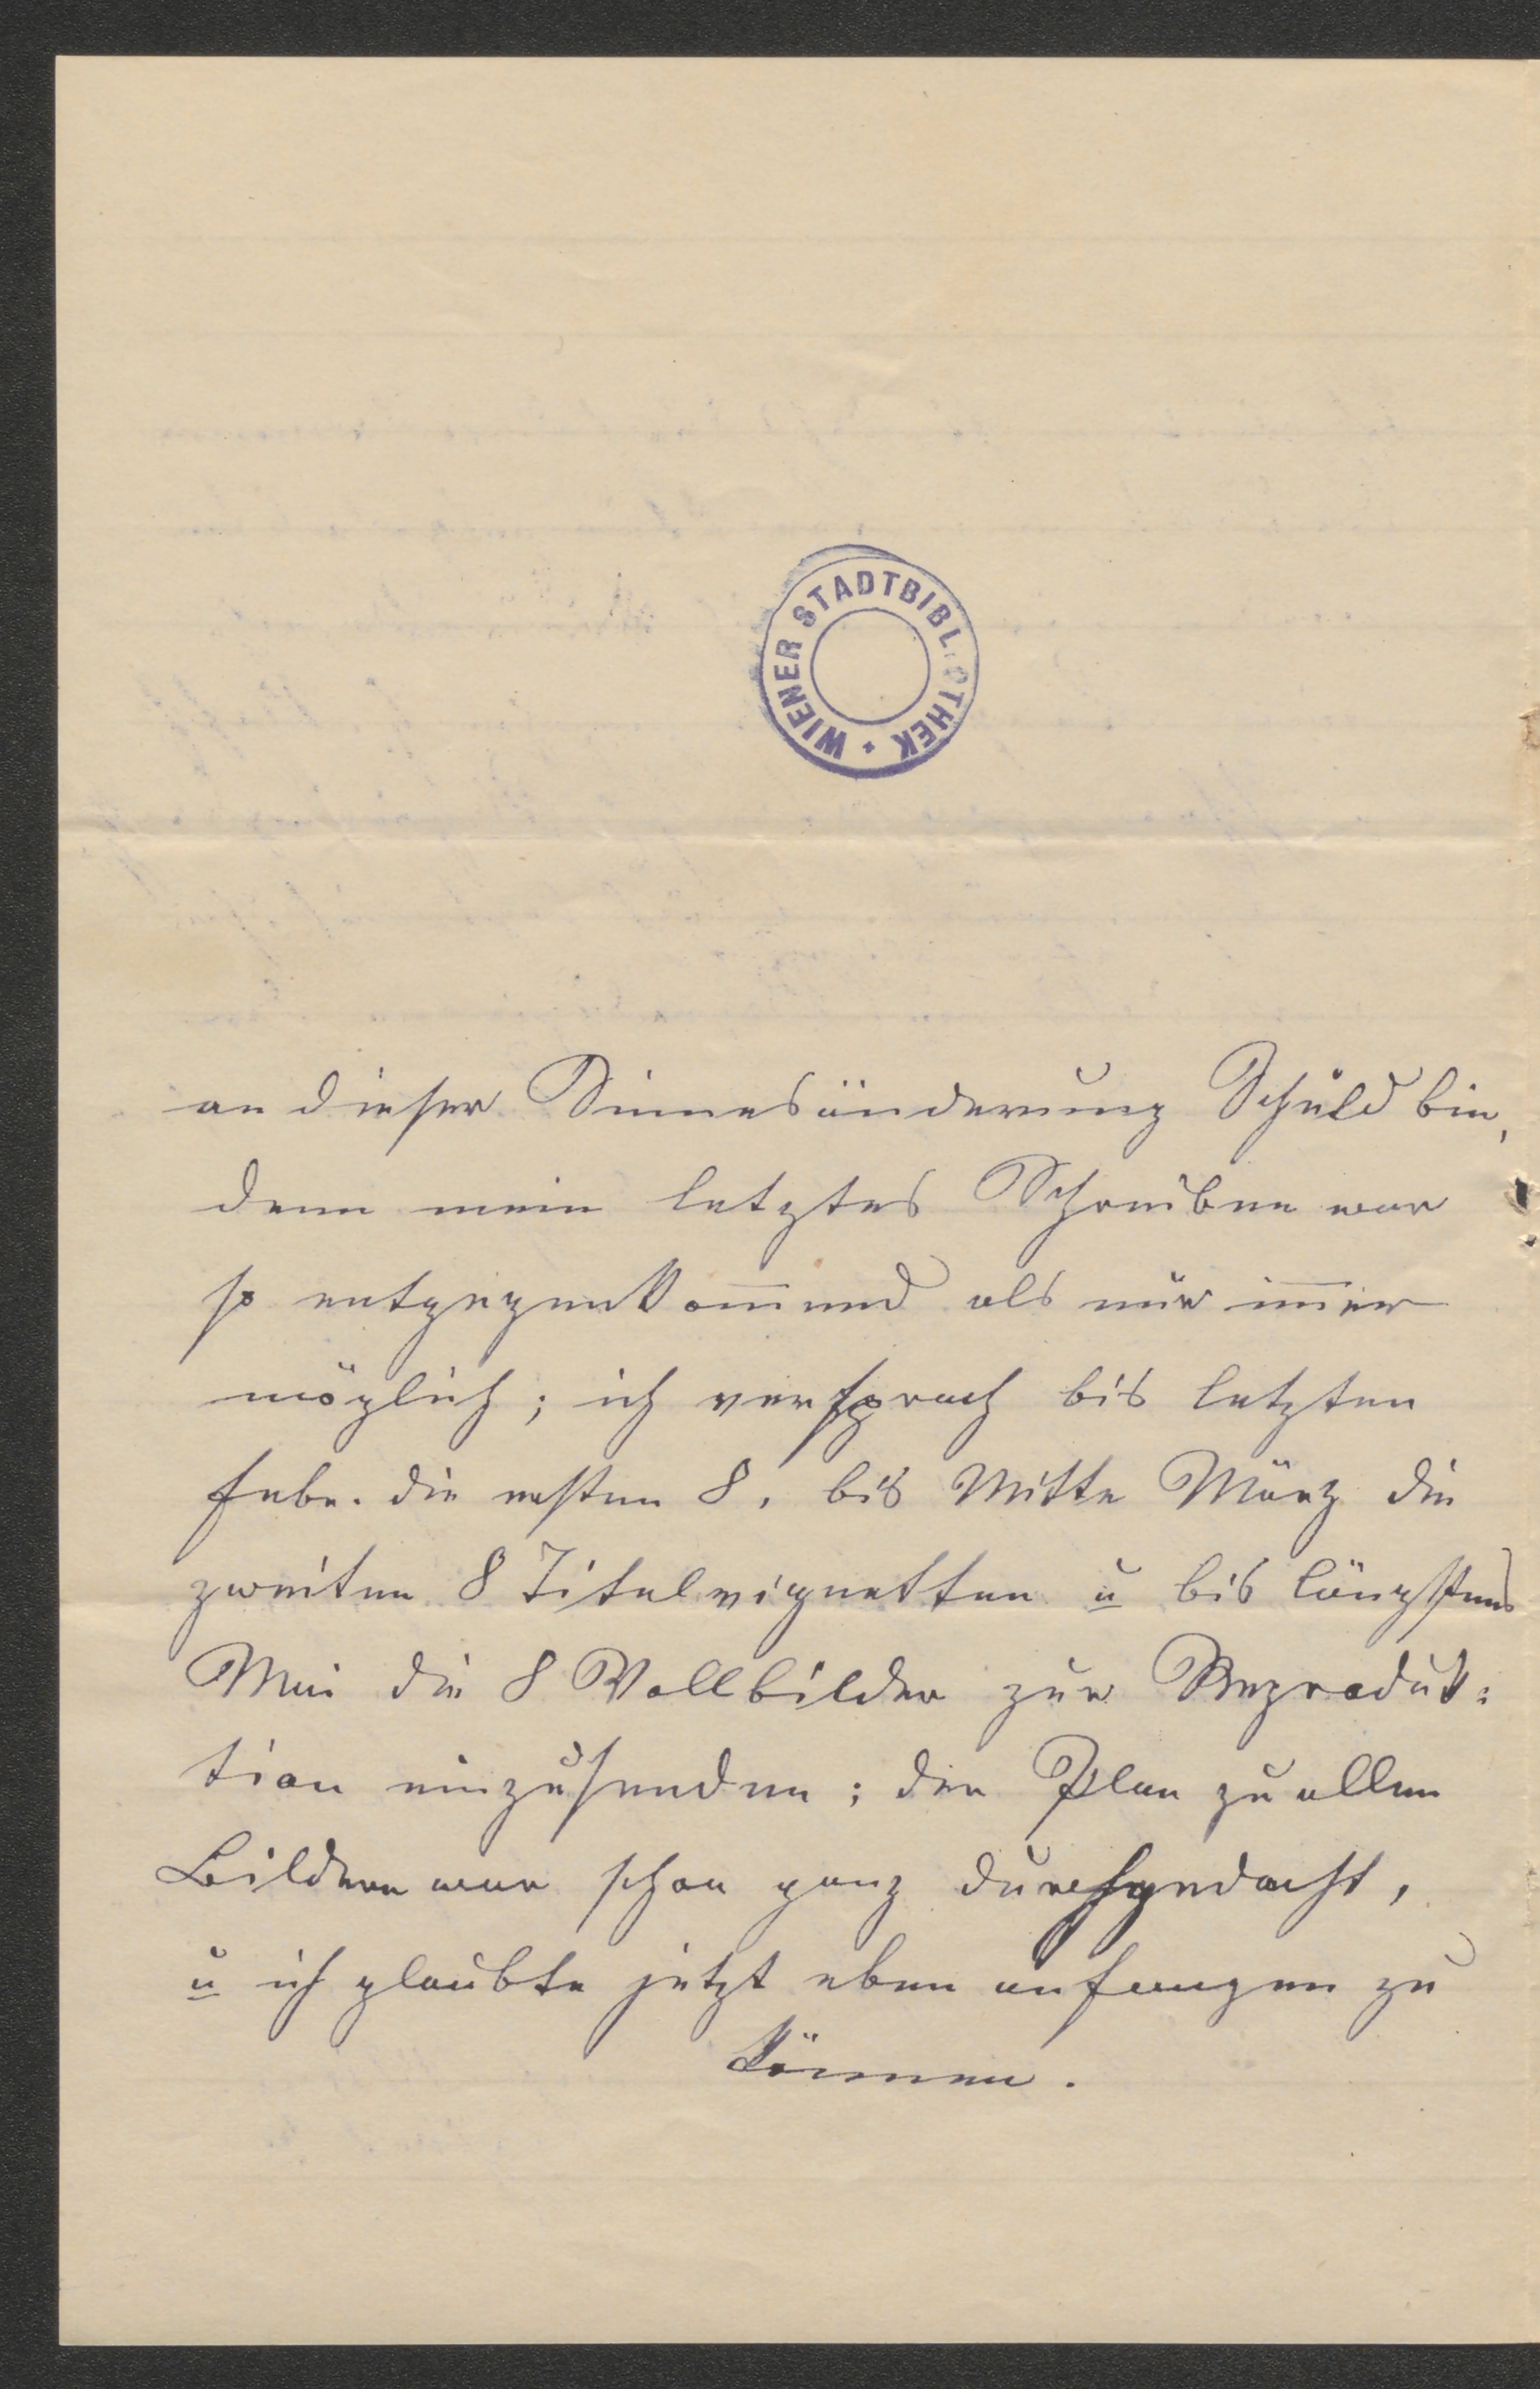 WIENER STADTBIBLIOTHEK *
an dieser Sinnesänderung Schuld bin,
denn mein letztes Schreiben war
so entgegenkom̅end als nur im̅er
möglich; ich versprach bis letzten
Febr. die ersten 8, bis Mitte März die
zweiten 8 Titelvignetten u bis längstens
Mai die 8 Vollbilder zur Reproduk:
tion einzusenden; der Plan zu allen
Bildern war schon ganz durchgedacht,
u ich glaubte jetzt eben anfangen zu
können.